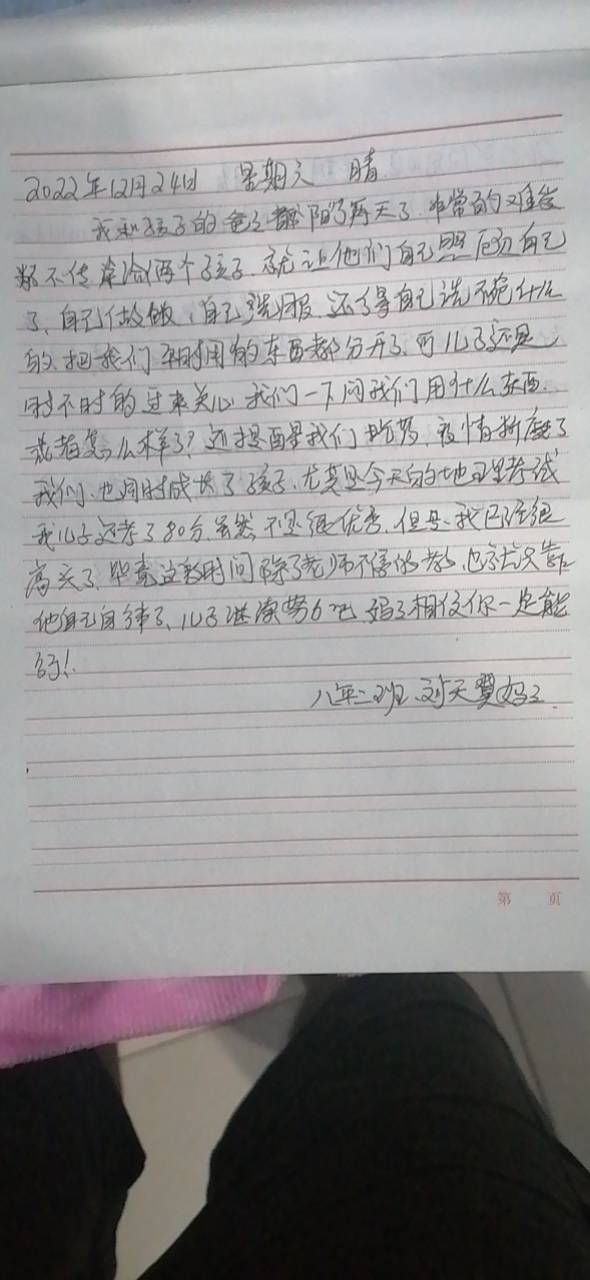 2022年12月24日 星期六 晴
我和孩子的爸爸都阳了两天了,非常的难受
不传染给两个孩子,就让他们自己照顾自己
了、自己做饭、自己洗衣服,还得自己洗碗什么
的、把我们平时用的东西都分开了,可儿子还是
时不时的过来关心我们一下问我们用什么东西、
或者怎么样了?还提醒我们吃药,疫情折磨了
我们、也同时成长了孩子、尤其是今天的地理考试
我儿子还考了80分、虽然不是很优秀,但是、我已经很
高兴了、毕竟这段时间除了老师不停的教,也就只靠
他自己自律了、儿子继续努力吧、妈妈相信你一定能
行!
八年二班、刘天 妈妈、
第 页